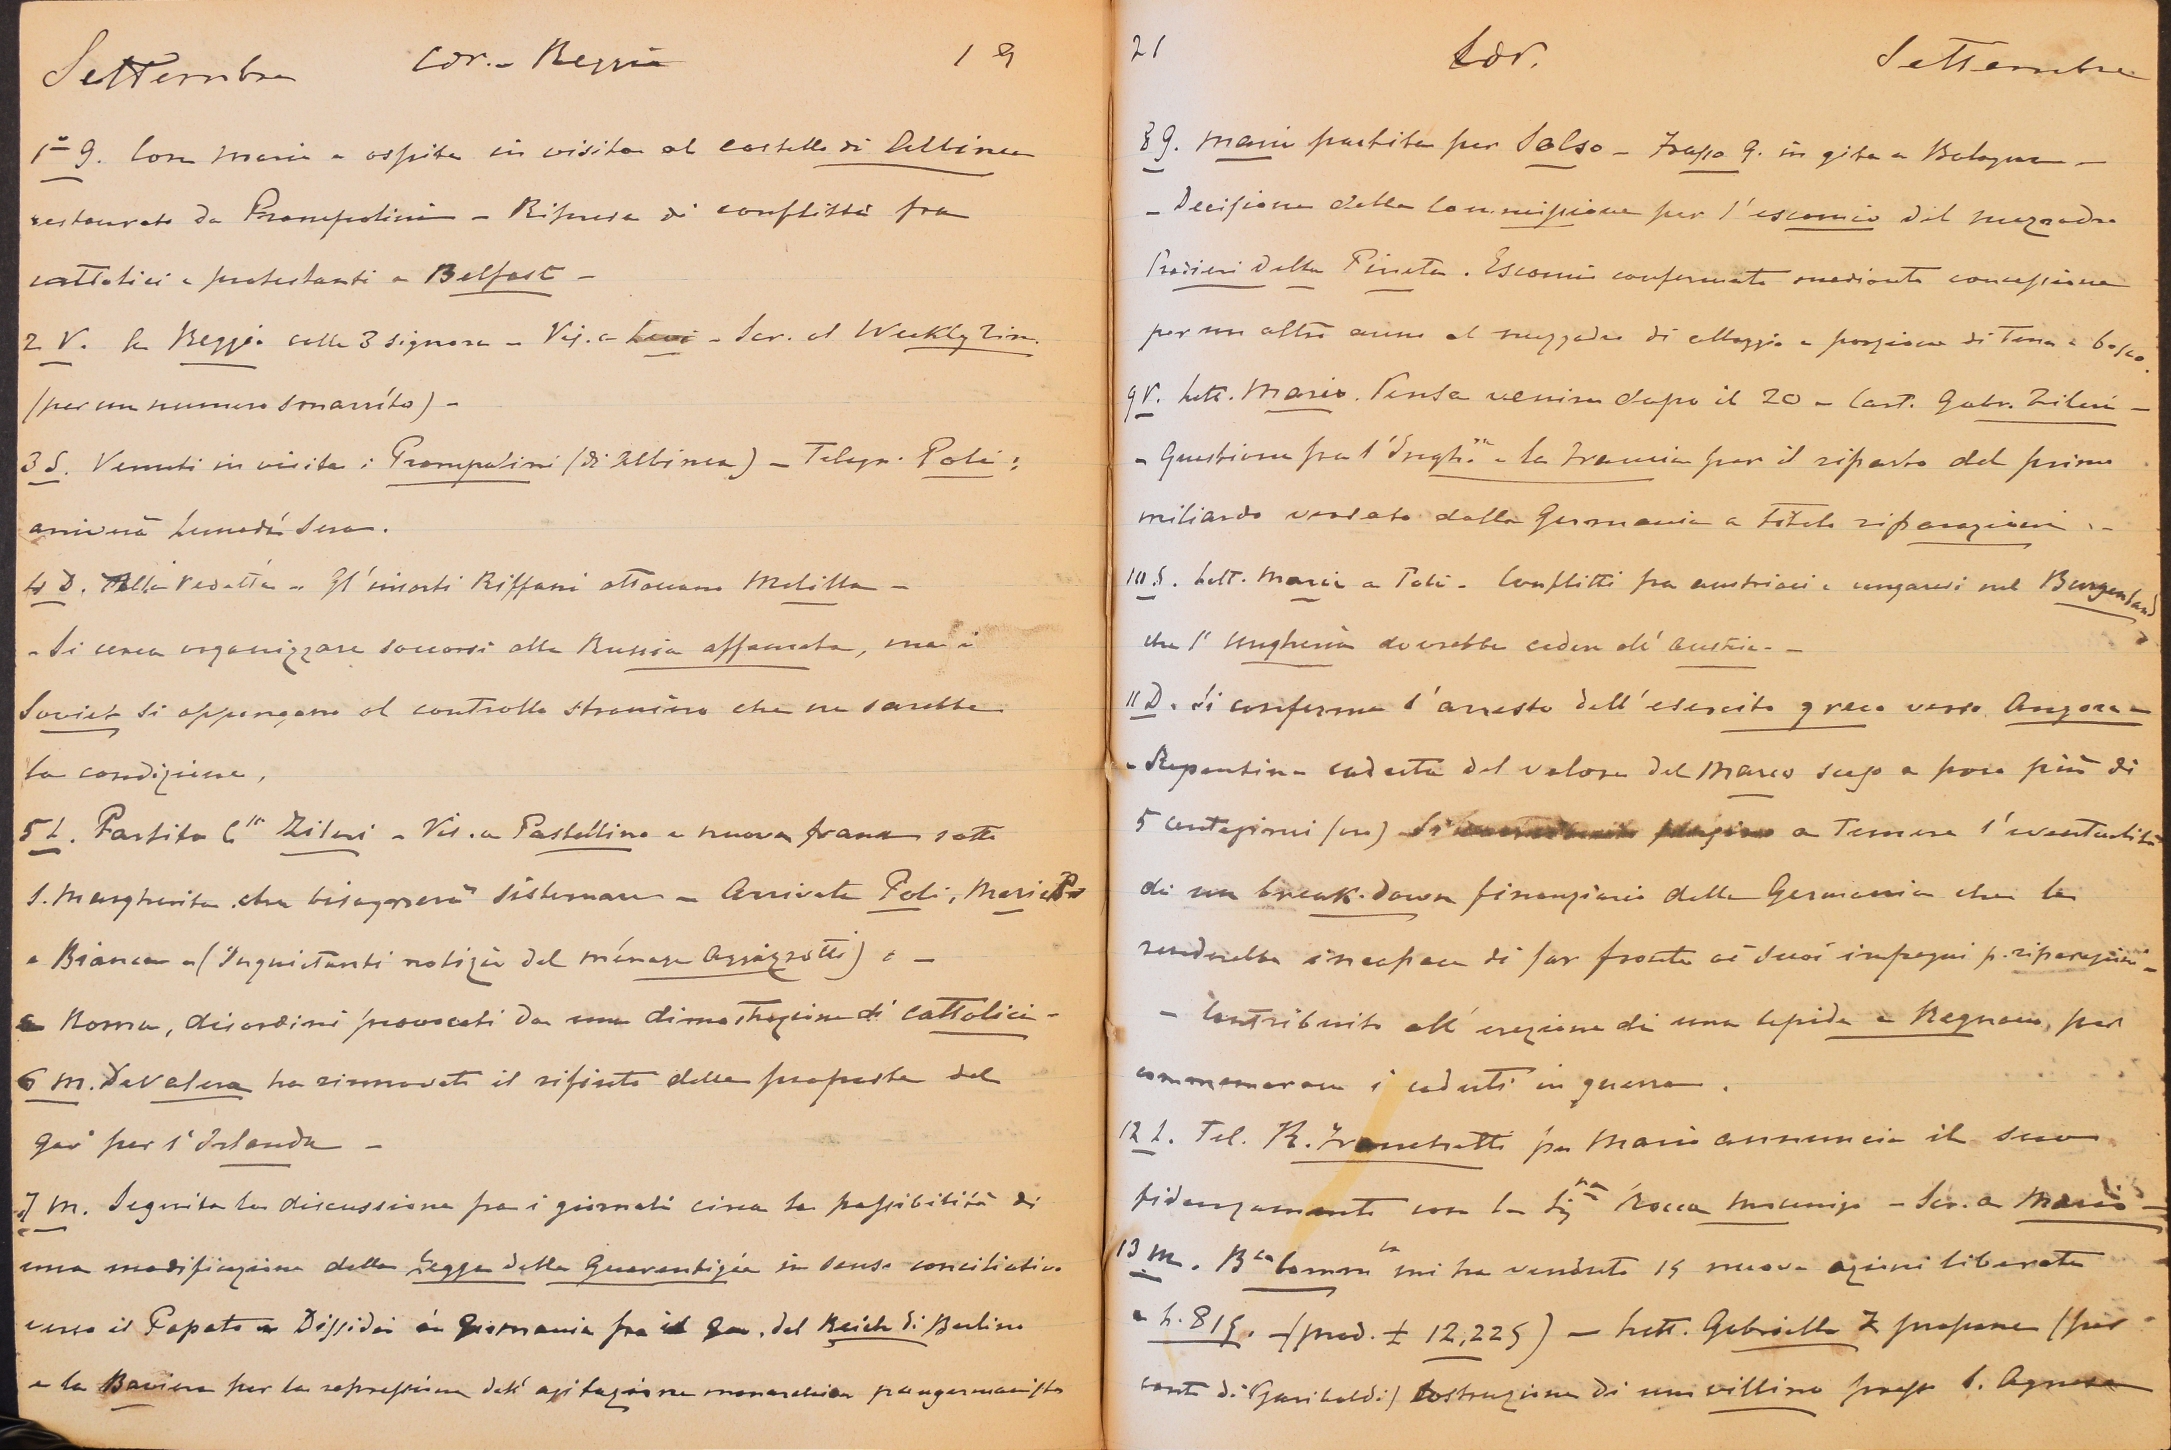 Settembre Cor. - Reggio 19
1º G. Con Maria e ospite in visita al castello di Albinea
restaurato da Prampolini - Ripresa di conflitti fra
cattolici e protestanti a Belfast -
2 V. A Reggio colle 3 signore - Vis. a Levi - Scr. al Weekly Tim.
(per un numero smarrito) -
3 S. Venuti in visita i Prampolini (di Albinea) - Telegr. Poli:
arriverà lunedì sera.
4 D. Alla Vedetta - Gl'insorti Riffani attaccano Melilla -
- Si cerca organizzare soccorsi alla Russia affamata, ma i
Soviet si oppongono al controllo straniero che ne sarebbe
la condizione.
5 L. Partita Zileri - Vis. a Pastellino e nuova frana sotto
S. Margherita che bisognerà sistemare - Arrivate Poli, Maria
e Bianca - (Inquietanti notizie del ménage Azzazzotti) -
a Roma, disordini provocati da una dimostrazione di cattolici -
6 M. De Valera ha rinnovato il rifiuto delle proposte del
gov per l'Irlanda -
7 M. Seguita la discussione fra i giornali circa la possibilità di
una modificazione della Legge delle Guarentigie in senso conciliativo
verso il Papato - Dissidi in Germania fra il gov. del Reich di Berlino
e la Baviera per la repressione dell'agitazione monarchica pangermanista
21 Cor. Settembre
8 G. Maria partita per Salso - Franco G. in gita a Bologna -
- Decisione della Commissione per l'escomio del mezzadro
Prodieri della Pineta. Escomio confermato mediante concessione
per un altro anno al mezzadro di alloggio e porzione di terra e bosco.
9 V. Lett. Mario. Pensa venire dopo il 20 - Cart. Gabr. Zileri -
- Questione fra l'Ingh.ra e la Francia per il riparto del primo
miliardo versato dalla Germania a titolo riparazioni -
10 S. Lett. Maria a Poli - Conflitti fra austriaci e ungaresi nel Burgenland
che l'Ungheria dovrebbe cedere all'Austria -
11 D. Si conferma l'arresto dell'esercito greco verso Angora -
- Repentina caduta del valore del Marco sceso a poco più di
5 centesimi (oro) a temere l'eventualità
di un break-down finanziario della Germania che la
renderebbe incapace di far fronte ai suoi impegni p. riparazioni -
- Contribuito all'erezione di una lapide a Regnano per
commemorare i caduti in guerra.
12 L. Tel. R. Franchetti per Mario annuncia il suo
fidanzamento con la Sig.na Rocca Mocenigo - Scr. a Mario -
13 M. B.ca Comm.le mi ha venduto 15 nuove azioni liberate
a L. 815. - (prod. £ 12,225) - Lett. Gabriella Z propone (per
conto di Garibaldi) costruzione di un villino presso S. Agnese